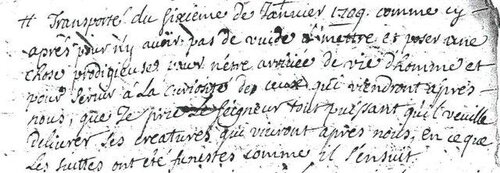 # Transporté du sixieme de Janvier 1709. comme cy
apres pour n'y avoir pas de vuide a mettre et poser une
chose prodigieuse vûer n'etre arrivée de vie d'homme et
pour servir a la curiosité de ceux qui viendront apres
nous, que Je prie le Seigneur tout puissant qu'il veuille
delivrer ses creatures qui viuront apres nous, en ce que
Les suittes ont eté funestes comme il s'ensuit.